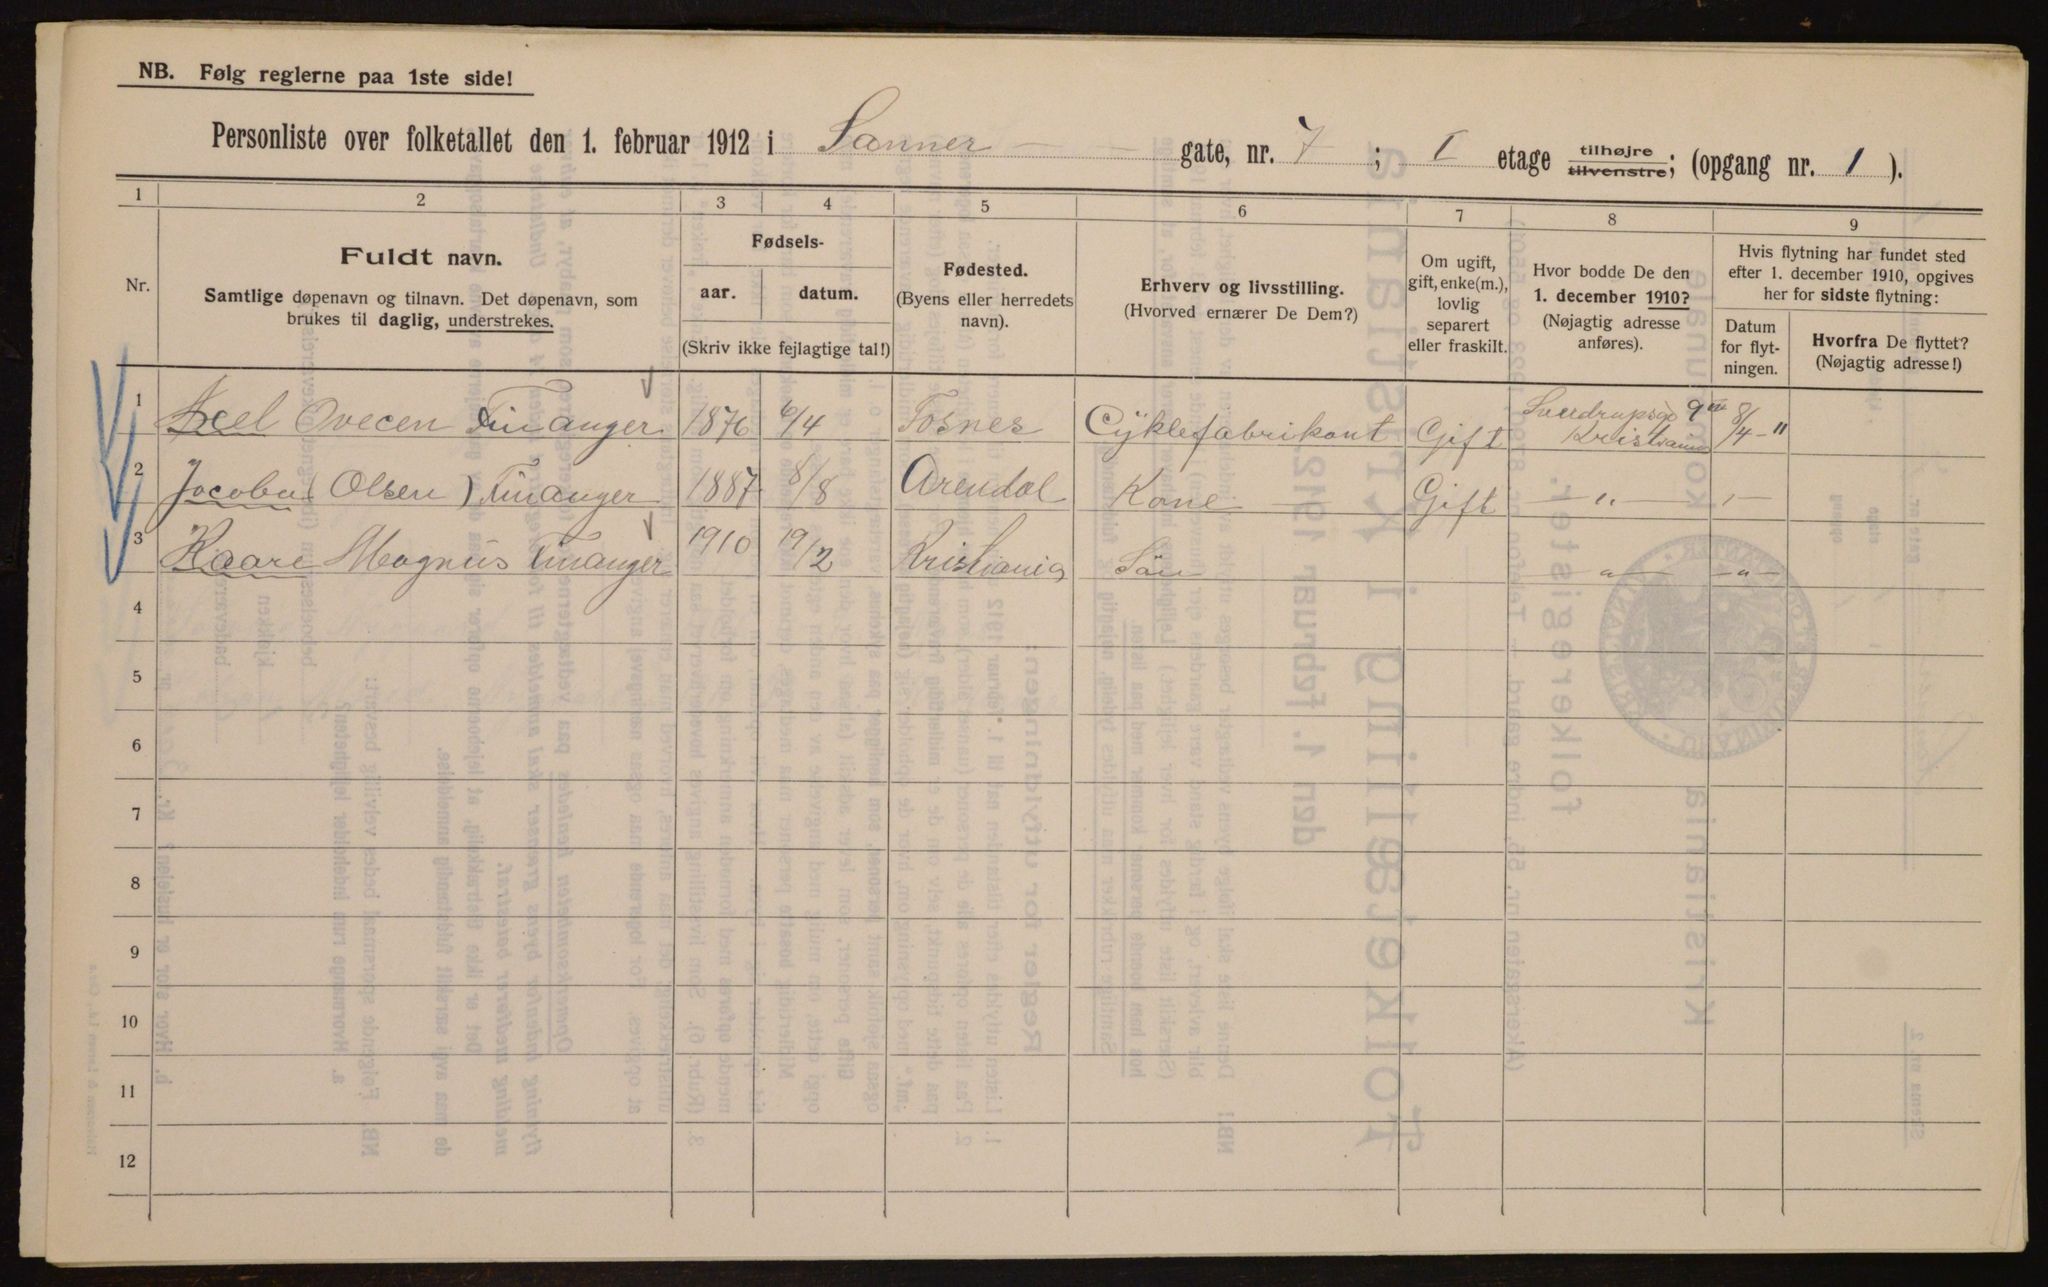 NB. Følg reglerne paa 1ste side!
Personliste over folketallet den 1. februar 1912 i Sanner gate, nr. 7 ; I etage tilhøjre tilvenstre; (opgang nr. 1 ).
1 2 3 4 5 6 7 8 9
Nr.
Fuldt navn.
Samtlige døpenavn og tilnavn. Det døpenavn, som
brukes til daglig, understrekes.
Fødsels-
aar. datum.
(Skriv ikke fejlagtige tal!)
Fødested.
(Byens eller herredets
navn).
Erhverv og livsstilling.
(Hvorved ernærer De Dem?)
Om ugift,
gift, enke(m.),
lovlig
separert
eller fraskilt.
Hvor bodde De den
1. december 1910?
(Nøjagtig adresse
anføres).
Hvis flytning har fundet sted
efter 1. december 1910, opgives
her for sidste flytning:
Datum
for flyt-
ningen.
Hvorfra De flyttet?
(Nøjagtig adresse!)
1 Axel Ovecen Finanger 1876 6/4 Fosnes Cyklefabrikant Gift Sverdrupsgd 9 Kristiania 8/4 - 11
2 Jacoba (Olsen) Finanger 1887 8/8 Arendal Kone Gift — " — " —
3 Kaare Magnus Finanger 1910 19/2 Kristiania Sön — " — — " —
4
5
6
7
8
9
10
11
12